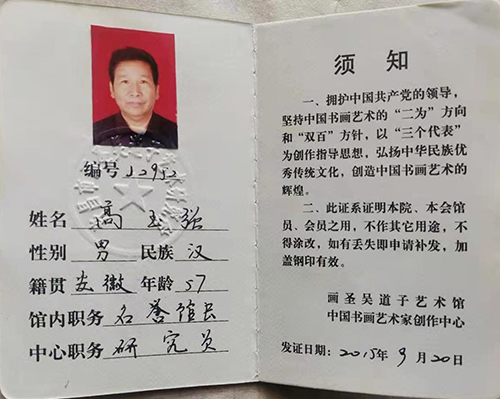 编号 J2952
姓名 高玉强
性别 男 民族 汉
籍贯 安徽 年龄 57
馆内职务 名誉馆长
中心职务 研究员
须知
一、拥护中国共产党的领导，
坚持中国书画艺术的“二为”方向
和“双百”方针，以“三个代表”
为创作指导思想，弘扬中华民族优
秀传统文化，创造中国书画艺术的
辉煌。
二、此证系证明本院、本会馆
员、会员之用，不作其它用途，不
得涂改，如有丢失即申请补发，加
盖钢印有效。
画圣吴道子艺术馆
中国书画艺术家创作中心
发证日期：2015年9月20日